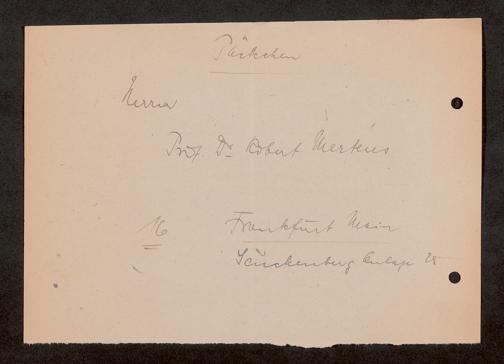 Päckchen
Herrn
Prof. Dr Robert Mertens
16 Frankfurt Main
Senckenberg Anlage 25